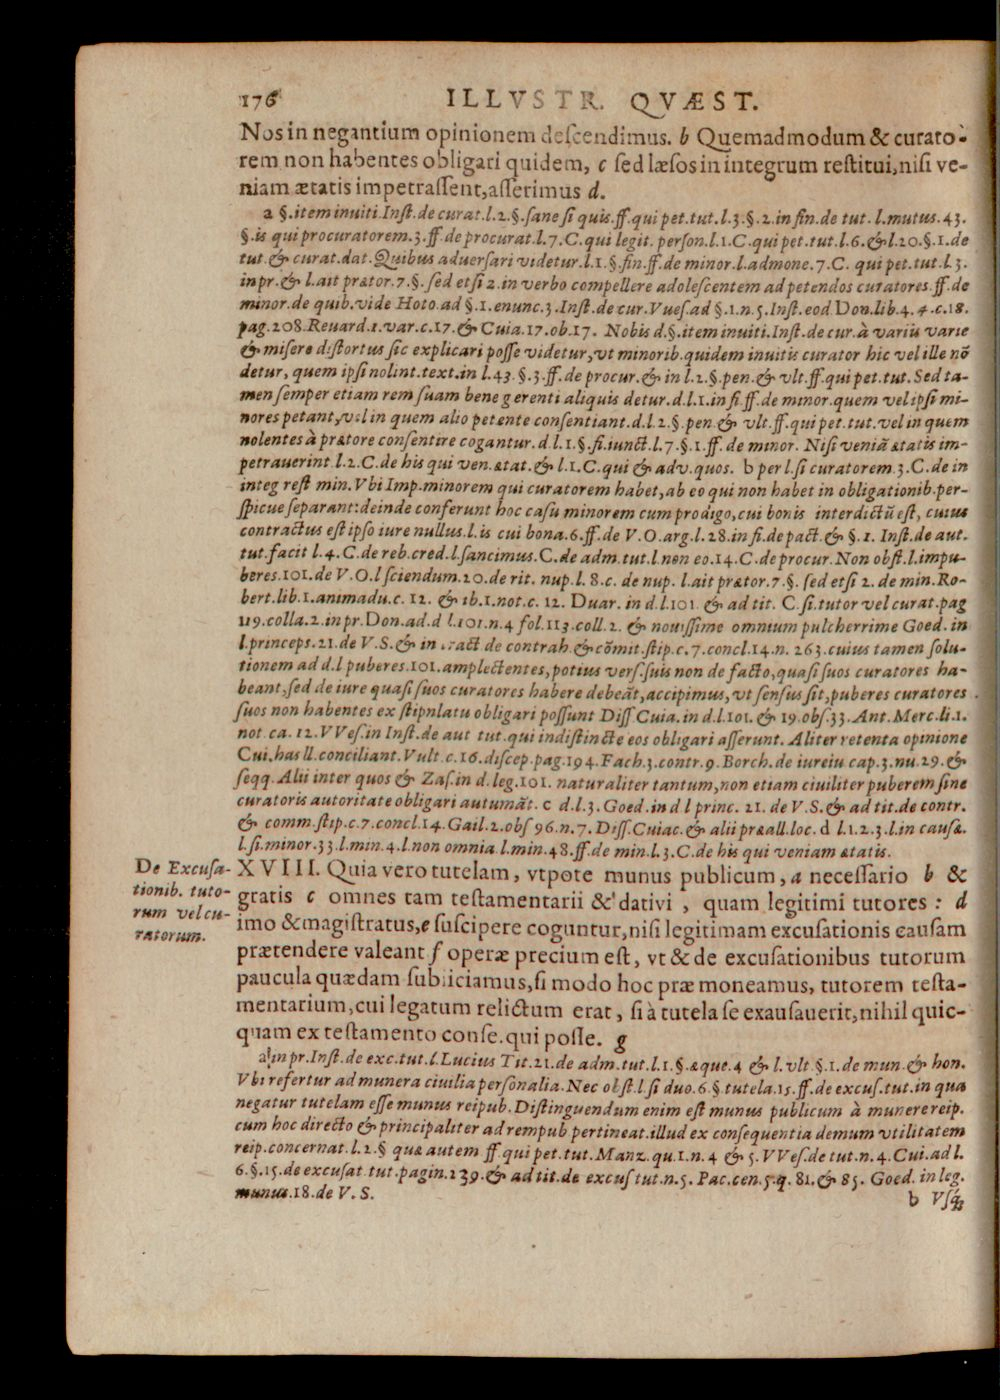 176 ILLVSTR. QVÆST.
Nos in negantium opinionem descendimus. b Quemadmodum & curato-
rem non habentes obligari quidem, c sed læsos in integrum restitui, nisi ve-
niam ætatis impetrassent, asserimus d.
a §. item inuiti. Inst. de curat. l. 2. §. sane si quis. ff. qui pet. tut. l. 3. §. 2. in fin. de tut. l. mutus. 43.
§. is qui procuratorem. 3. ff. de procurat. l. 7. C. qui legit. person. l. 1. C. qui pet. tut. l. 6. & l. 20. §. 1. de
tut. & curat. dat. Quibus aduersari videtur. l. 1. §. fin. ff. de minor. l. admone. 7. C. qui pet. tut. l. 3.
in pr. & l. ait prætor. 7. §. sed etsi 2. in verbo compellere adolescentem ad petendos curatores. ff. de
minor. de quib. vide Hoto. ad §. 1. enunc. 3. Inst. de cur. Vues. ad §. 1. n. 5. Inst. eod Don. lib. 4. 4. c. 18.
pag. 208. Reuard. 1. var. c. 17. & Cuia. 17. ob. 17. Nobis d. §. item inuiti. Inst. de cur. à variis varie
& misere distortus sic explicari posse videtur, vt minorib. quidem inuitis curator hic vel ille nõ
detur, quem ipsi nolint. text. in l. 43. §. 3. ff. de procur. & in l. 2. §. pen. & vlt. ff. qui pet. tut. Sed ta-
men semper etiam rem suam bene gerenti aliquis detur. d. l. 1. in fi. ff. de minor. quem vel ipsi mi-
nores petant, vel in quem alio petente consentiant. d. l. 2. §. pen. & vlt. ff. qui pet. tut. vel in quem
nolentes à prætore consentire cogantur. d l. 1. §. fi. iunct. l. 7. §. 1. ff. de minor. Nisi veniã ætatis im-
petrauerint. l. 2. C. de his qui ven. ætat. & l. 1. C. qui & adv. quos. b per l. si curatorem. 3. C. de in
integ rest min. Vbi Imp. minorem qui curatorem habet, ab eo qui non habet in obligationib. per-
spicue separant: deinde conferunt hoc casu minorem cum prodigo, cui bonis interdictũ est, cuius
contractus est ipso iure nullus. l. is cui bona. 6. ff. de V. O. arg. l. 28. in fi. de pact. & §. 1. Inst. de aut.
tut. facit l. 4. C. de reb. cred. l. sancimus. C. de adm. tut. l. non eo. 14. C. de procur. Non obst. l. impu-
beres. 101. de V. O. l sciendum. 20. de rit. nup. l. 8. c. de nup. l. ait prætor. 7. §. sed etsi 2. de min. Ro-
bert. lib. 1. animadu. c. 12. & ib. 1. not. c. 12. Duar. in d. l. 101. & ad tit. C. si. tutor vel curat. pag
119. colla. 2. in pr. Don. ad. d l. 101. n. 4 fol. 113. coll. 2. & nouissime omnium pulcherrime Goed. in
l. princeps. 21. de V. S. & in tract de contrah. & cõmit. stip. c. 7. concl. 14. n. 263. cuius tamen solu-
tionem ad d. l puberes. 101. amplectentes, potius vers. suis non de facto, quasi suos curatores ha-
beant, sed de iure quasi suos curatores habere debeãt, accipimus, vt sensus sit, puberes curatores
suos non habentes ex stipnlatu obligari possunt Diss. Cuia. in d. l. 101. & 19. obs. 33. Ant. Merc. li. 1.
not. ca. 12. VVes. in Inst. de aut tut. qui indistincte eos obligari asserunt. Aliter retenta opinione
Cui. has ll. conciliant. Vult. c. 16. discep. pag. 194. Fach. 3. contr. 9. Borch. de iureiu cap. 3. nu. 29. &
seqq. Alii inter quos & Zas. in d. leg. 101. naturaliter tantum, non etiam ciuiliter puberem sine
curatoris autoritate obligari autumãt. c d. l. 3. Goed. in d l princ. 21. de V. S. & ad tit. de contr.
& comm. stip. c. 7. concl. 14. Gail. 2. obs 96. n. 7. Diss. Cuiac. & alii præall. loc. d l. 1. 2. 3. l. in causæ.
l. si. minor. 33. l. min. 4. l. non omnia. l. min. 48. ff. de min. l. 3. C. de his qui veniam ætatis.
De Excusa-
tionib. tuto-
rum vel cu-
ratorum.
XVIII. Quia vero tutelam, vtpote munus publicum, a necessario b &
gratis c omnes tam testamentarii & dativi, quam legitimi tutores: d
imo & magistratus, e suscipere coguntur, nisi legitimam excusationis causam
prætendere valeant f operæ precium est, vt & de excusationibus tutorum
paucula quædam subiiciamus, si modo hoc præmoneamus, tutorem testa-
mentarium, cui legatum relictum erat, si à tutela se exausauerit, nihil quic-
quam ex testamento conse.qui posse. g
a in pr. Inst. de exc. tut. l. Lucius Tit. 21. de adm. tut. l. 1. §. æque. 4 & l. vlt §. 1. de mun. & hon.
Vbi refertur ad munera ciuilia personalia. Nec obst. l si duo. 6. §. tutela. 15. ff. de excus. tut. in qua
negatur tutelam esse munus reipub. Distinguendum enim est munus publicum à munere reip.
cum hoc directo & principaliter ad rempub pertineat. illud ex consequentia demum vtilitatem
reip. concernat. l. 2. § quæ autem ff. qui pet. tut. Manz. qu. 1. n. 4 & 5. VVes. de tut. n. 4. Cui. ad l.
6. §. 15. de excusat. tut. pagin. 239. & ad tit. de excus tut. n. 5. Pac. cen. 5. q. 81. & 85. Goed. in leg.
munus. 18. de V. S.
b Vsq́;